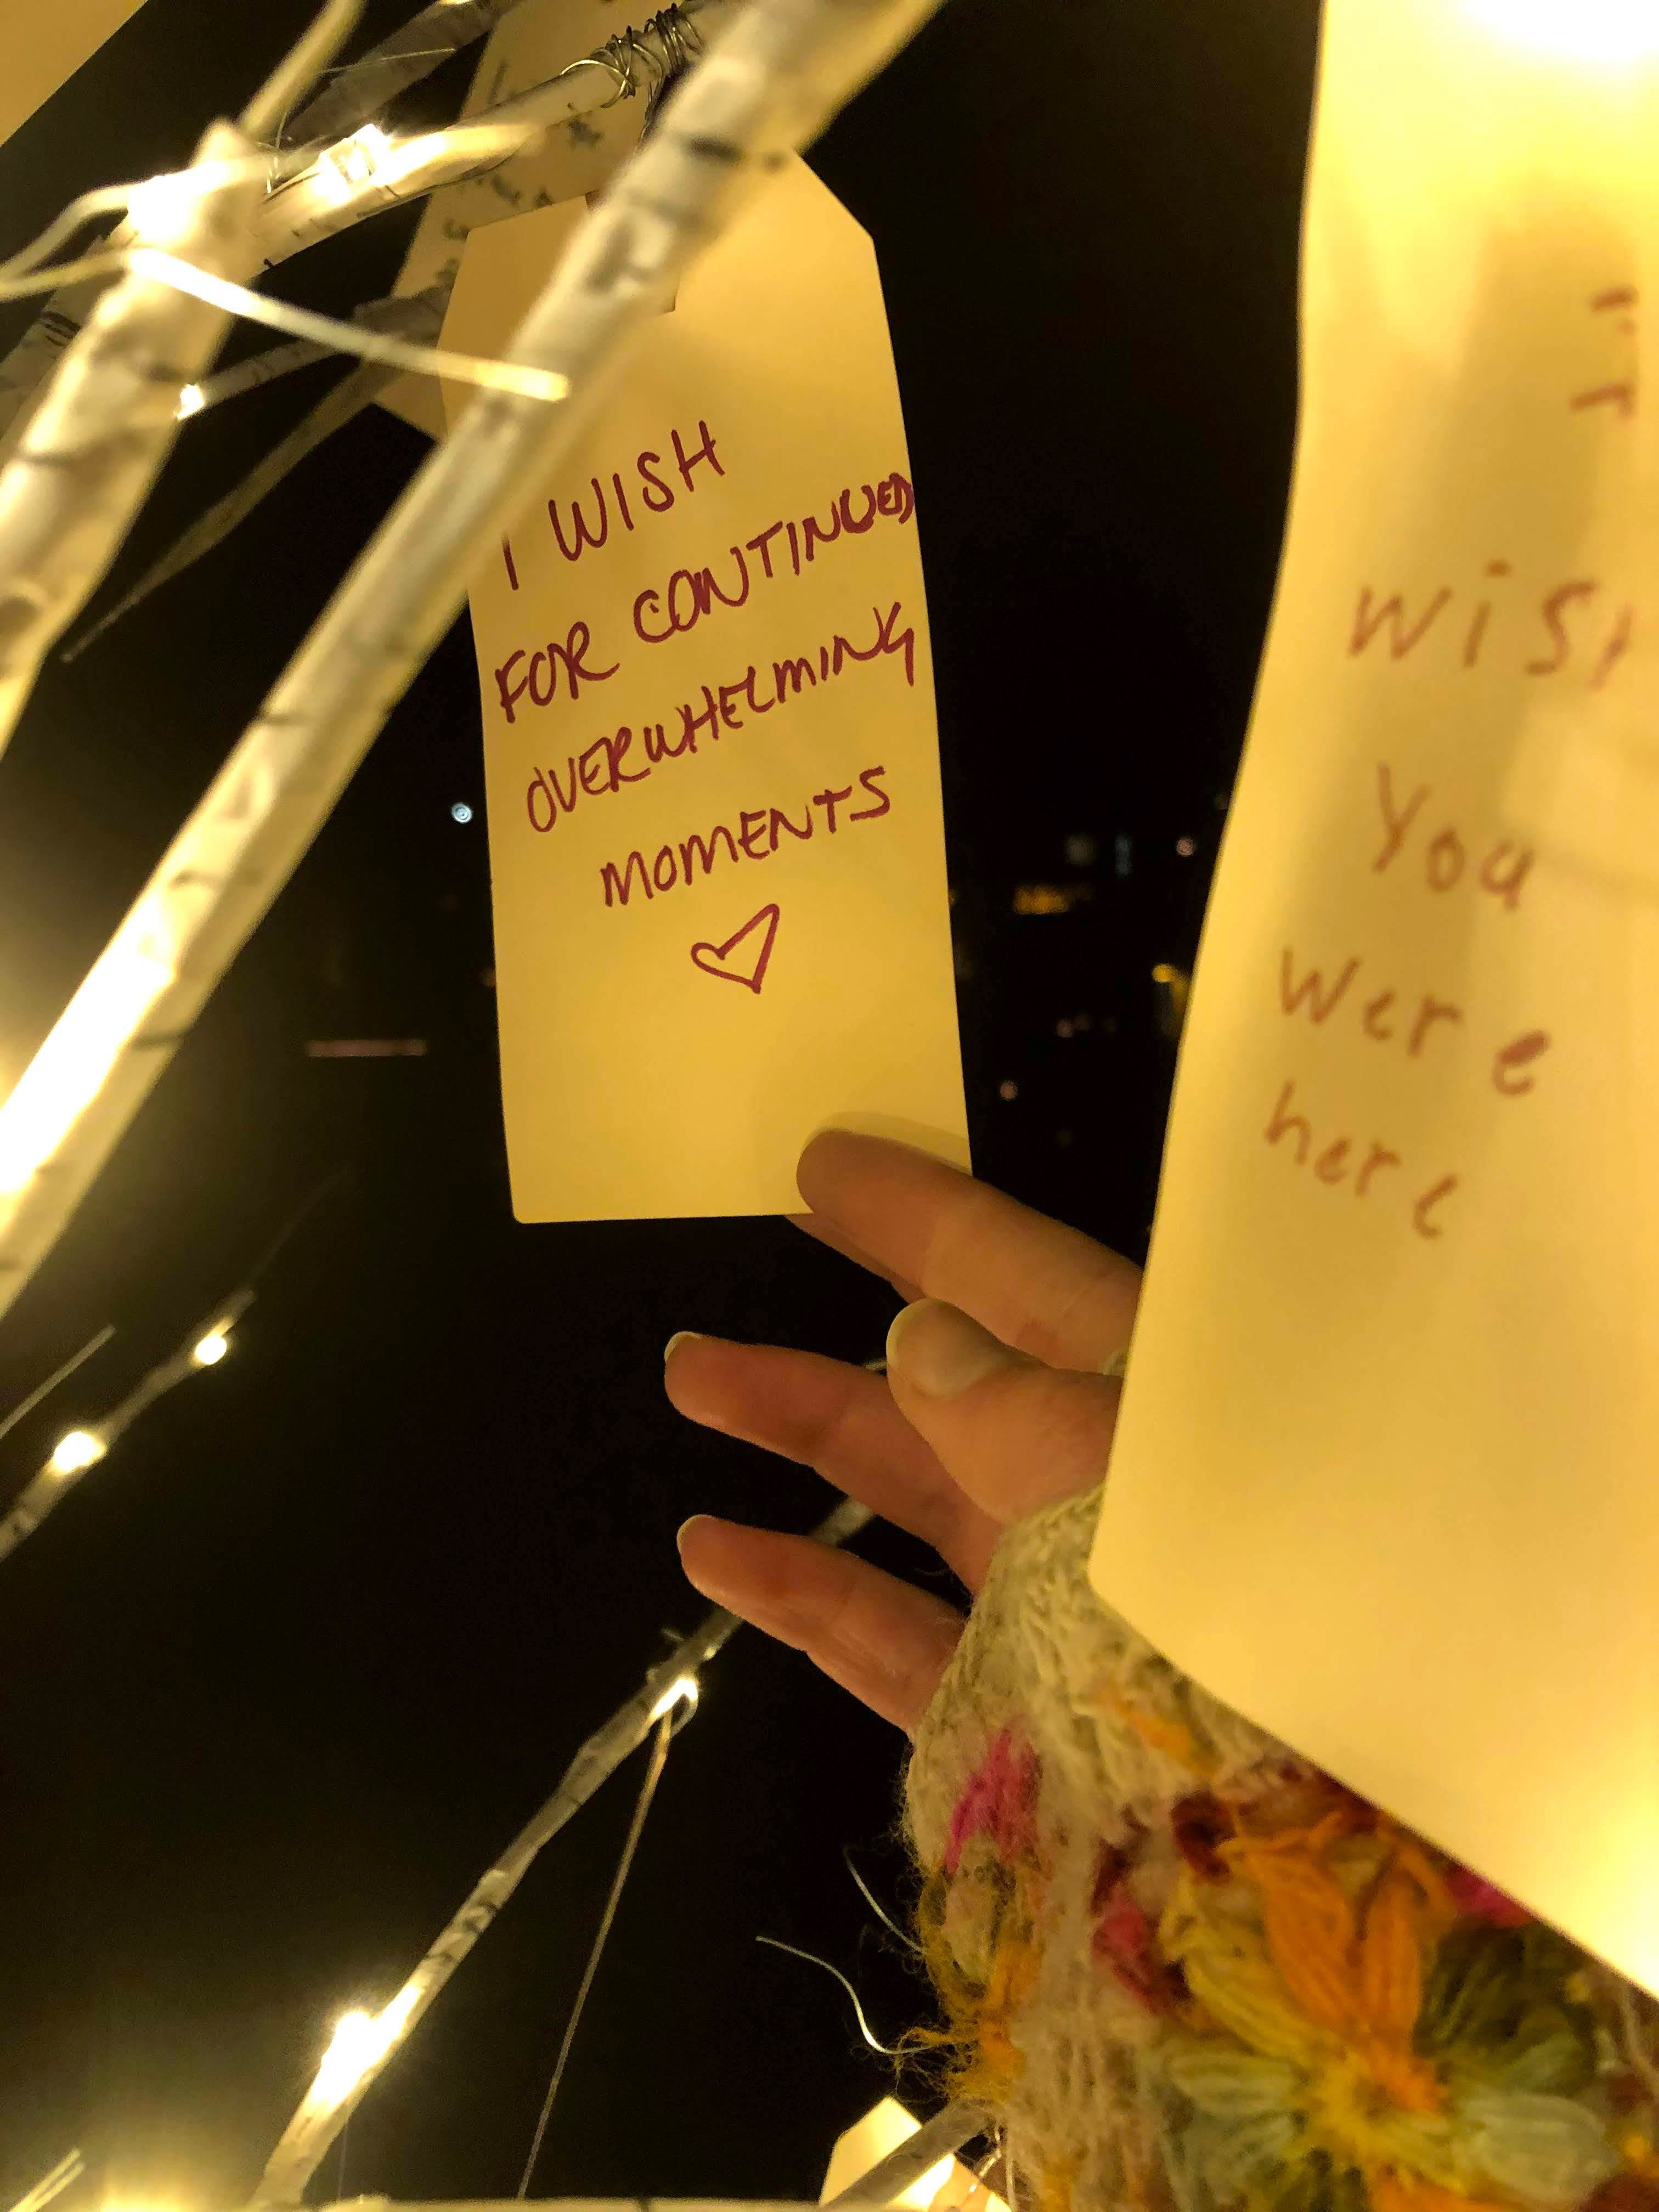 I WISH
FOR CONTINUED
OVERWHELMING
MOMENTS
I
wish
you
were
here